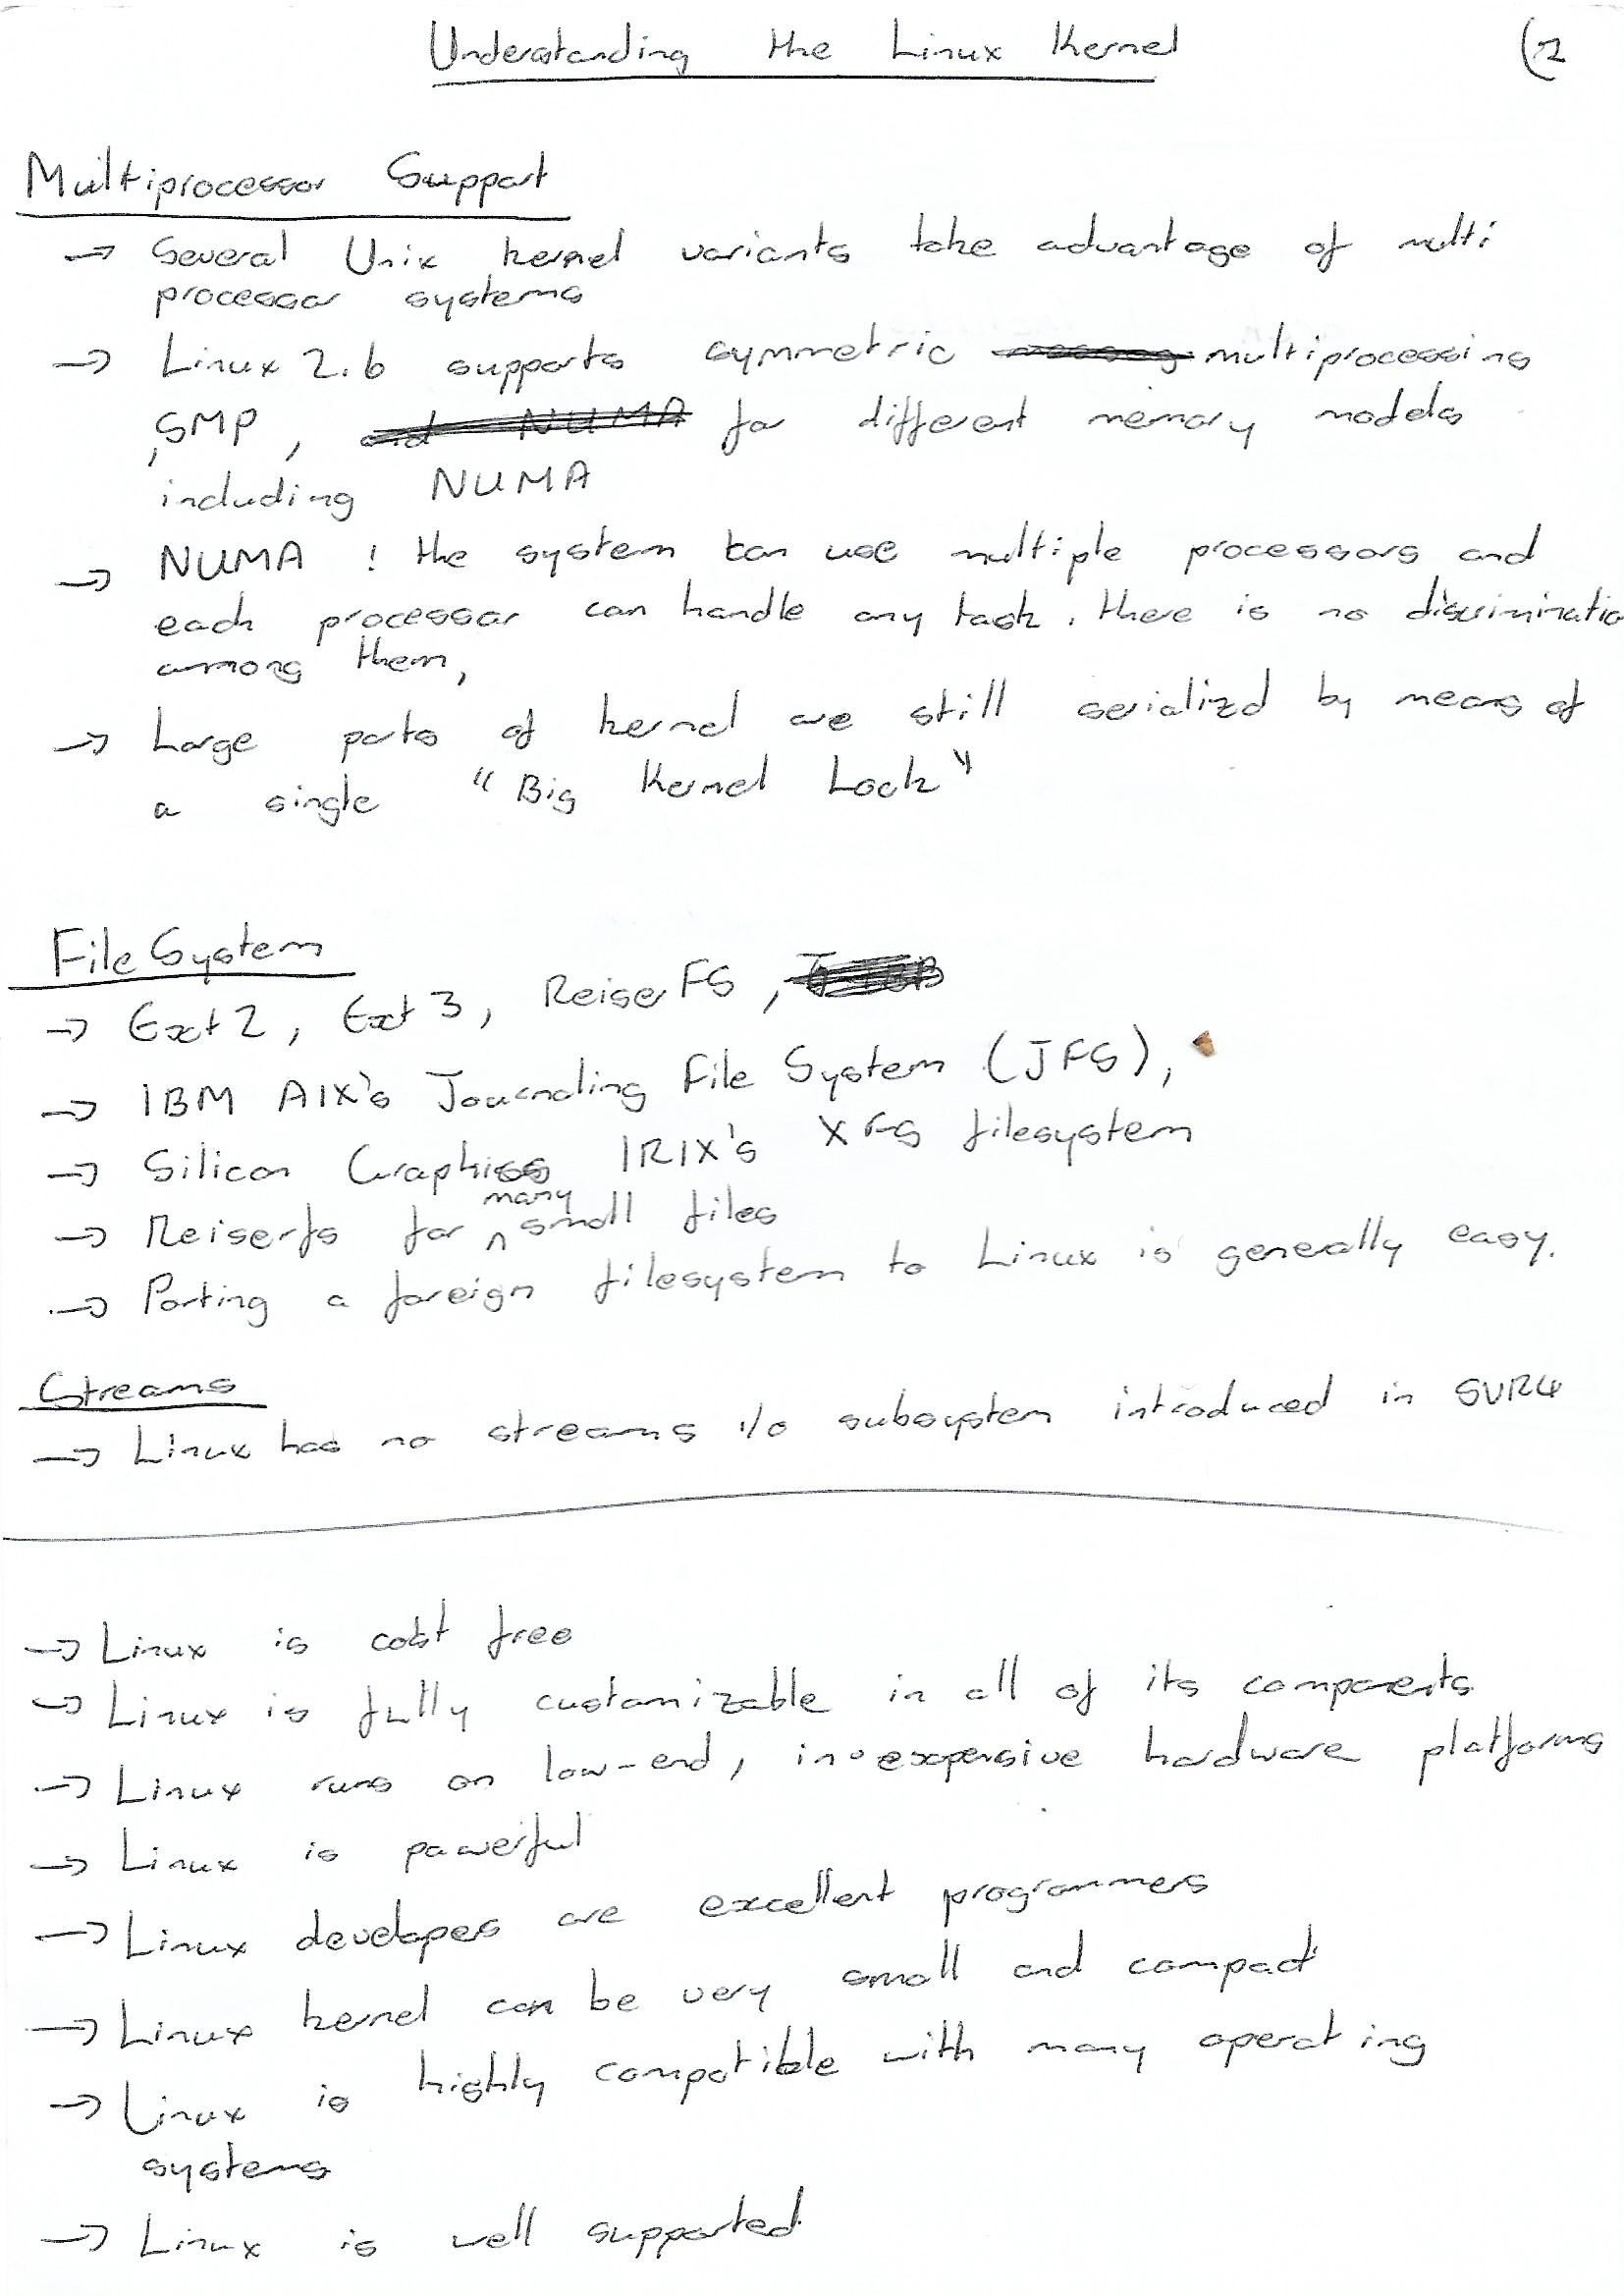 Understanding the Linux Kernel (2
Multiprocessor Support
→ Several Unix kernel variants take advantage of multi
processor systems
→ Linux 2.6 supports symmetric multiprocessing
,SMP, for different memory models
including NUMA
→ NUMA ! the system can use multiple processors and
each processor can handle any task. there is no discriminatio
among them,
→ Large parts of kernel are still serialized by means of
a single "Big Kernel Lock"
File System
→ Ext2, Ext3, ReiserFS,
→ IBM AIX's Journaling File System (JFS),
→ Silicon Graphics IRIX's XFS filesystem
→ Reiserfs for many small files
→ Porting a foreign filesystem to Linux is generally easy.
Streams
→ Linux has no streams i/o subsystem introduced in SVR4
→ Linux is cost free
→ Linux is fully customizable in all of its components
→ Linux runs on low-end, inexpensive hardware platforms
→ Linux is powerful
→ Linux developes are excellent programmers
→ Linux kernel can be very small and compact
→ Linux is highly compatible with many operating
systems
→ Linux is well supported